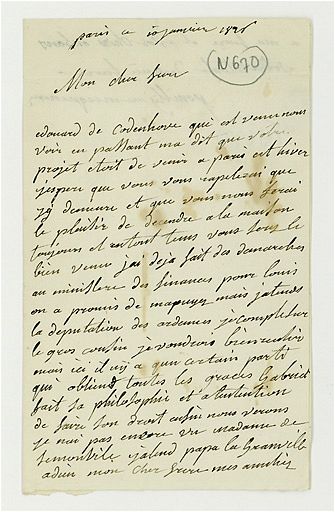 paris ce 10 janvier 1826
N670
Mon cher frere
edouard de Codenhove qui est venu nous
voir en passant ma dit que votre
projet etoit de venir a paris cet hiver
jespere que vous vous rapelerai que
jy demeure et que vous nous ferais
le plaisir de decendre a la maison
toujours et surtout tems vous sera le
bien venu jai deja fait des demarches
au ministere des finances pour louis
on a promis de mapuyer mais jatends
la deputation des ardennes je compte sur
le gros cousin je voudrois bien reussir
mais ici il ny a que certain parti
qui obtiend toutes les graces Gabriel
fait sa philosophie et a lintention
de faire son droit enfin nous verons
je nai pas encore vu madame de
jatend papa la Granville
adieu mon cher frere mes amitiés